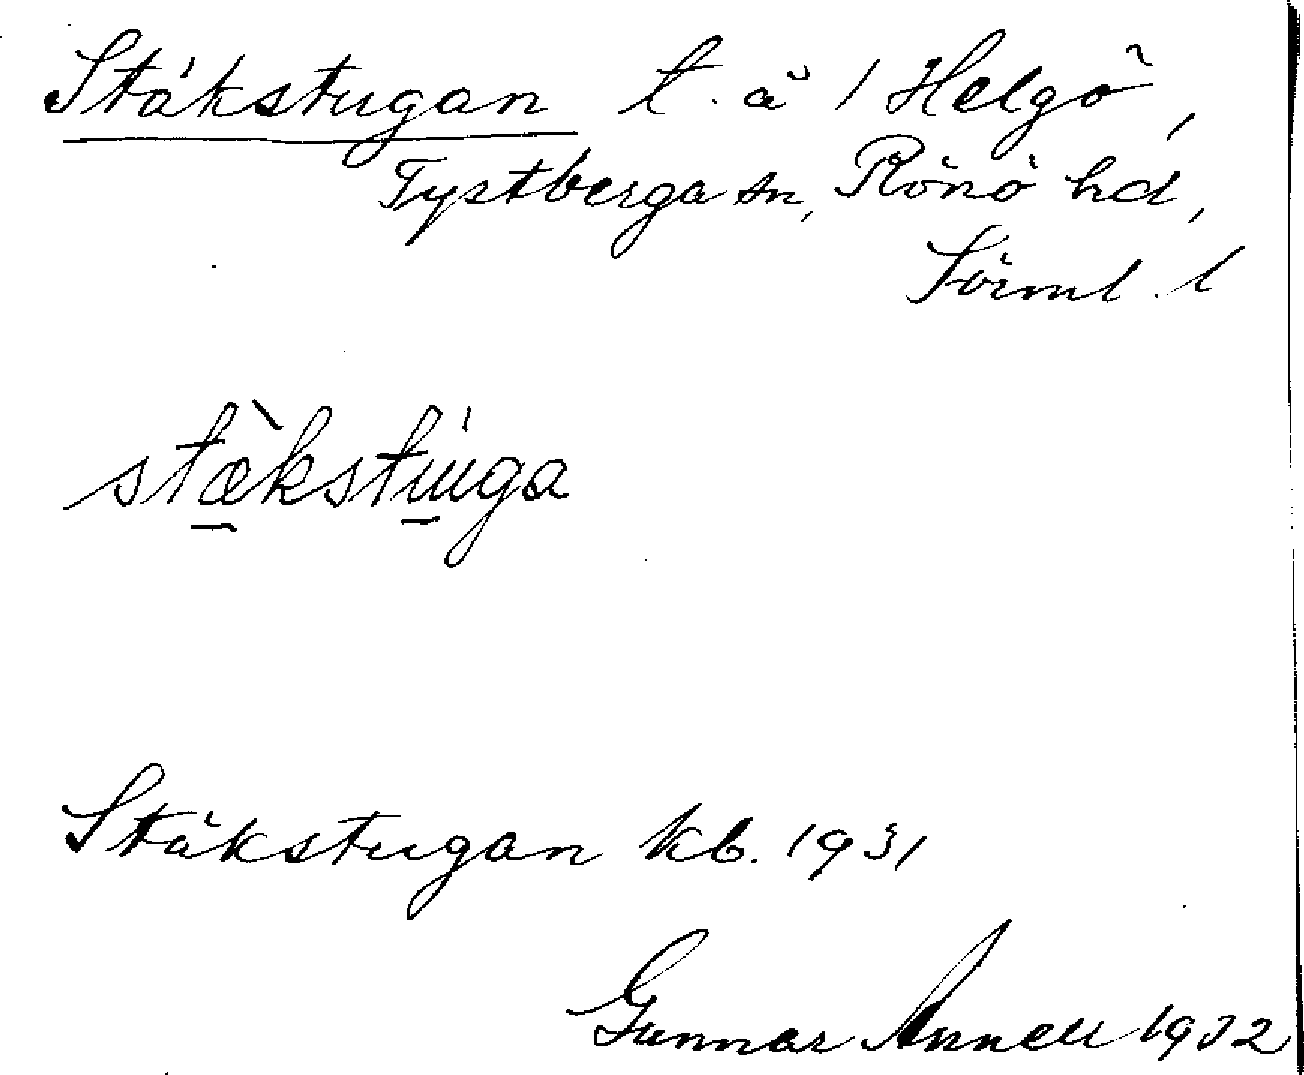 Stäkstugan t. å / Helgö,
Tystberga sn, Rönö hd,
Sörml. l
stæ̀kstúga
Stäkstugan kb. 1931
Gunnar Annell 1932